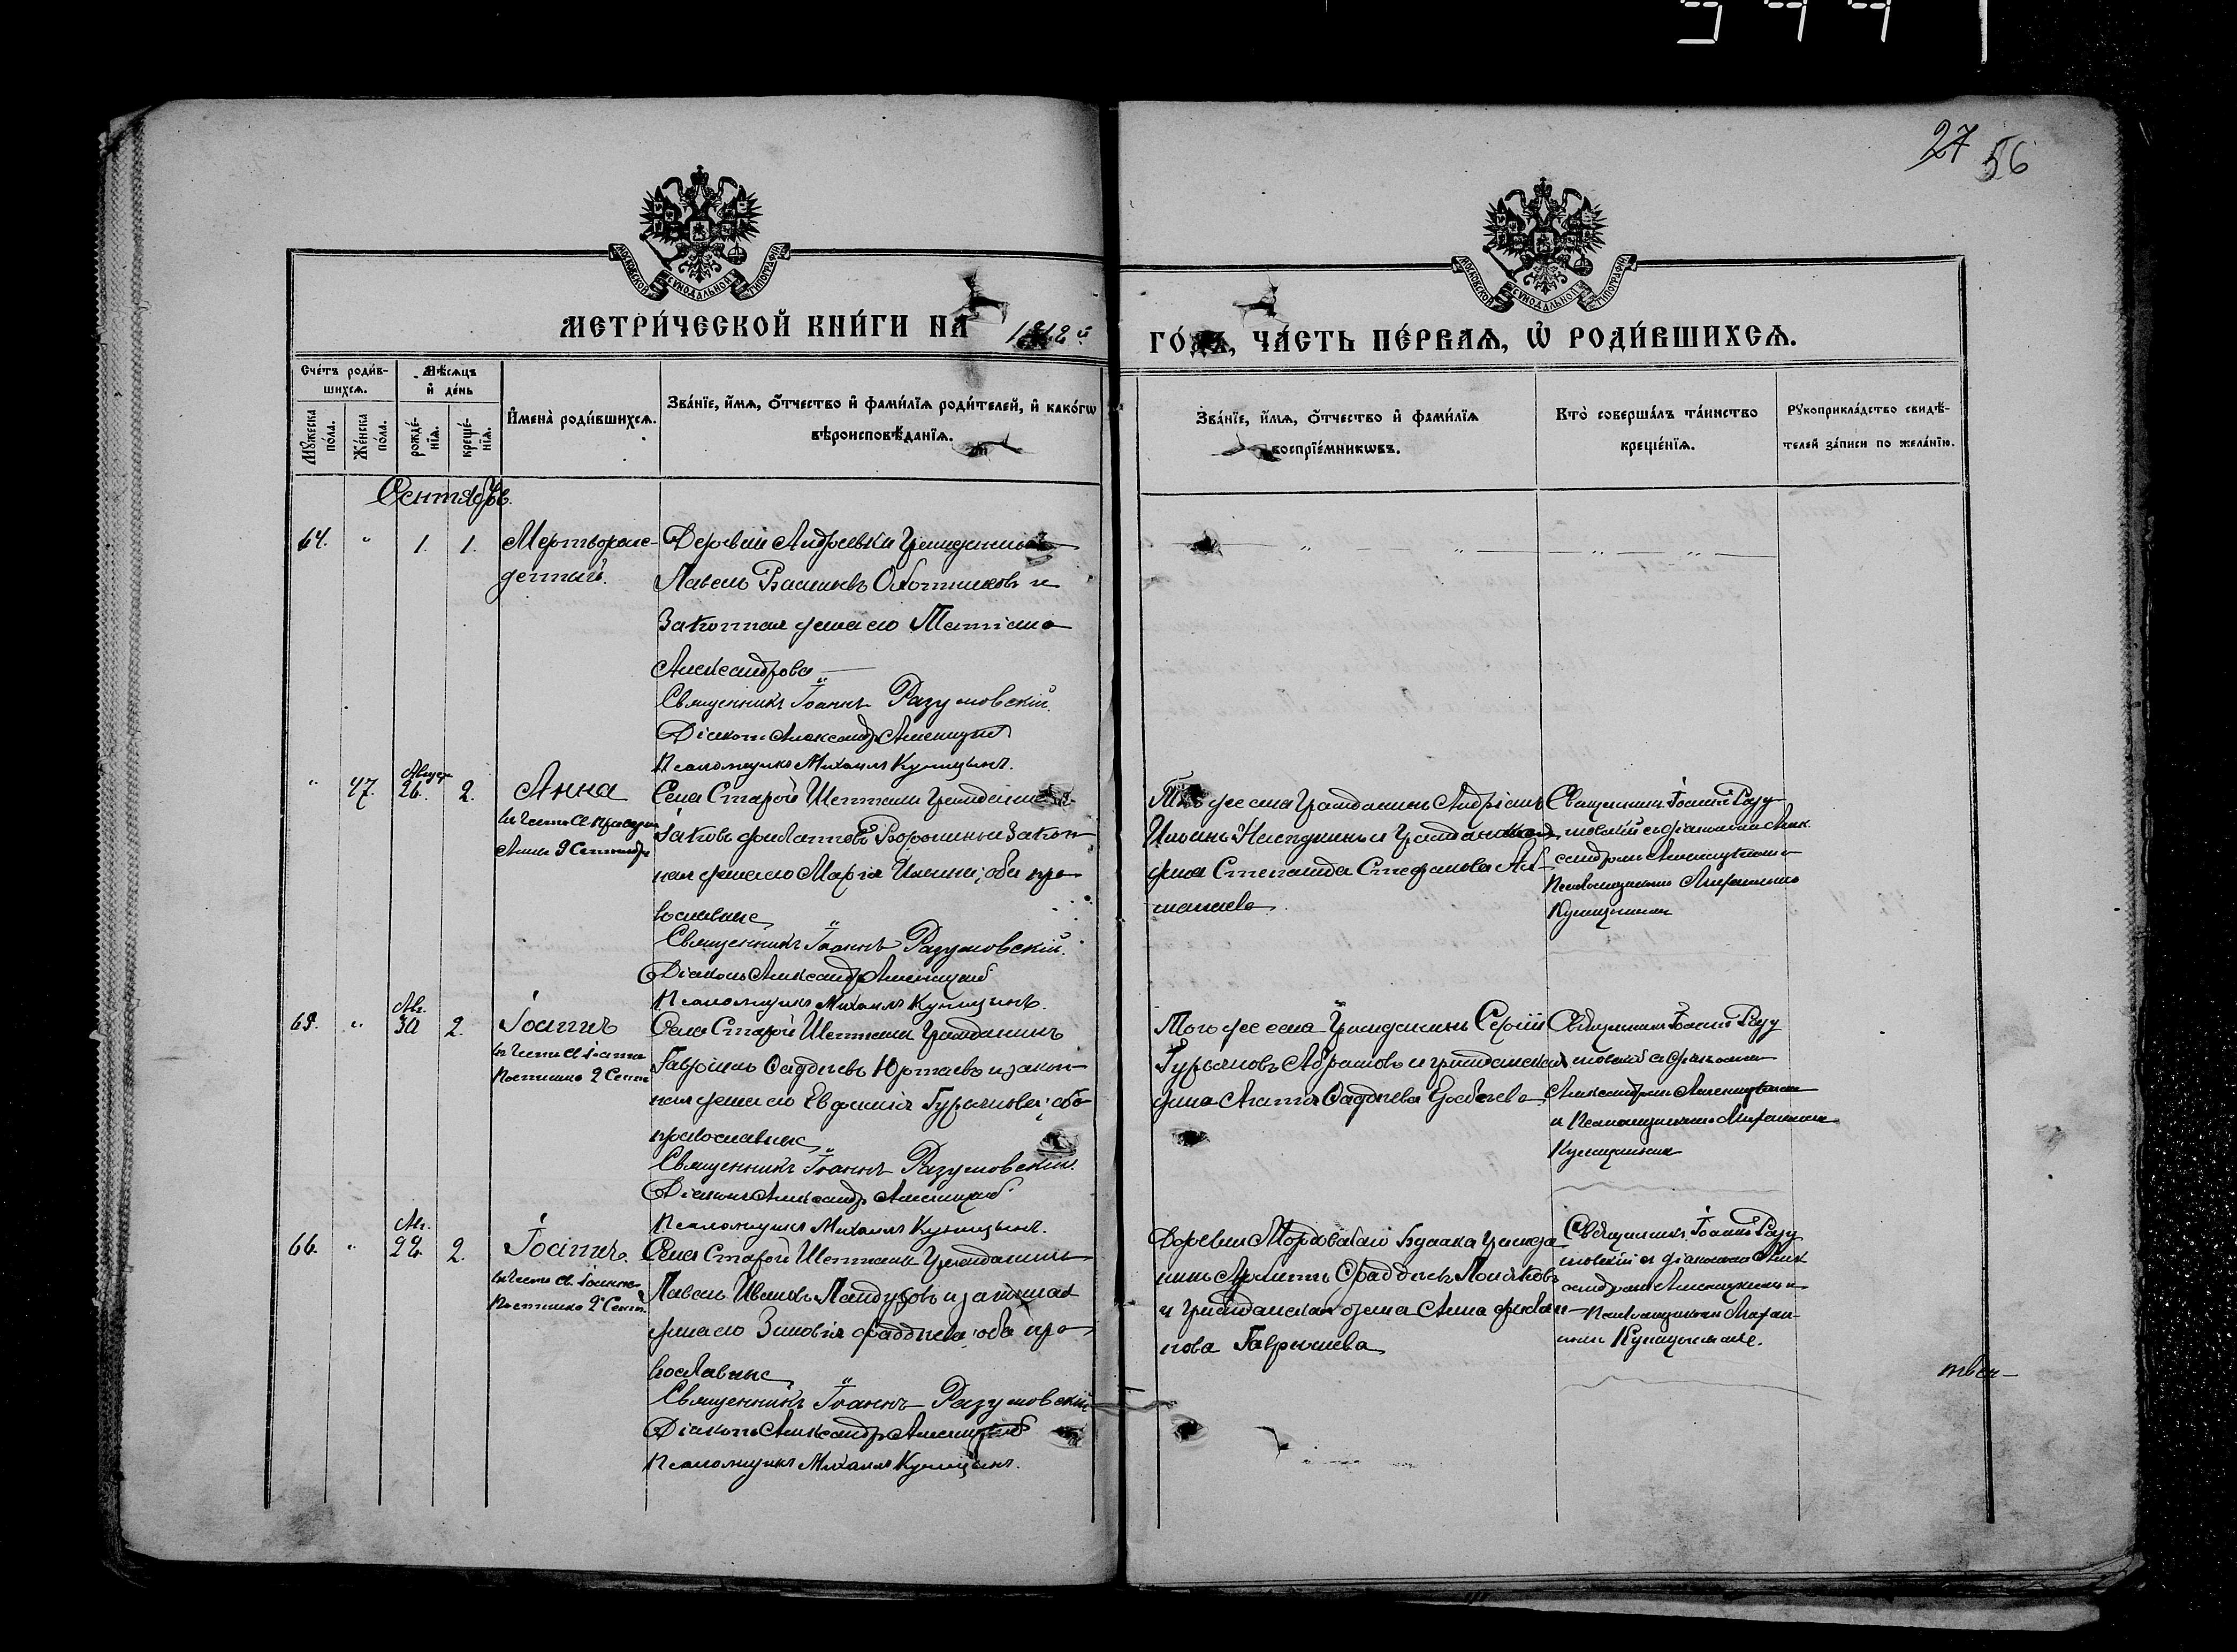 27 56
МОСКОВСКОЙ СѴНОДАЛЬНОЙ ТИПОГРАФІИ
МОСКОВСКОЙ СѴНОДАЛЬНОЙ ТИПОГРАФІИ
МЕТРИ́ЧЕСКОЙ КНИ́ГИ НА
ГО́ДЪ, ЧА́СТЬ ПЕ́РВАЯ, Ѡ҆ РОДИ́ВШИХСЯ.
Сче́тъ роди́в-
шихся.
Мꙋ́жеска по́ла.
Же́нска по́ла.
Мѣ́сяцъ
и҆ де́нь
рожде́-
нїя.
креще́-
нїя.
И҆мена̀ роди́вшихся.
Зва́нїе, и҆́мя, ѻ҆́тчество и҆ фами́лїя роди́телей, и҆ како́гѡ
вѣроисповѣ́данїя.
Зва́нїе, и҆́мя, ѻ҆́тчество и҆ фами́лїя
воспрїе́мникѡвъ.
Кто̀ соверша́лъ та́инство
креще́нїя.
Рꙋкоприкла́дство свидѣ́-
телей за́писи по жела́нїю.
Сентябрь.
64. " 1. 1.
Мертворож-
денный.
Деревни Андреевки гражданинъ
Павелъ Васильевъ Охотниковъ и
законная жена его Татiана
Александрова
Священникъ Іоаннъ Разумовскій.
Діаконъ Александръ
Псаломщикъ Михаилъ Куницынъ.
" 47. 26. 2.
Анна
въ честь св. правед
Анны 9 Сентября
Села Старой Шентали гражданинъ
Іаковъ Филатовъ Воронинъ и закон
ная жена его Марія Ильина; оба пра
вославные
Священникъ Іоаннъ Разумовскій.
Діаконъ Александръ
Псаломщикъ Михаилъ Куницынъ.
Того же села гражданинъ Андріанъ
Ильинъ и гражданская
жена Степанида Стефанова
Священникъ Іоаннъ Разу
мовскій съ діакономъ Алек
сандромъ
Псаломщикомъ Михаиломъ
Куницынымъ
65. " Авг. 30 2.
Іоаннъ
въ честь св. Іоанна
Постника 2 Сент.
Села Старой Шентали гражданинъ
Гавріилъ Фаддеевъ Юртаевъ и закон
ная жена его Евфимія Гурьянова; оба
православные
Священникъ Іоаннъ Разумовскій.
Діаконъ Александръ
Псаломщикъ Михаилъ Куницынъ.
Того же села гражданинъ Сергій
Гурьяновъ Абрамовъ и гражданская
жена Фаддеева
Священникъ Іоаннъ Разу
мовскій съ діакономъ
Александромъ
и Псаломщикомъ Михаиломъ
Куницынымъ
66. " Авг. 2.
Іоаннъ.
въ честь св. Іоанна
Постника 2 Сент.
Села Старой Шентали гражданинъ
Павелъ Ивановъ и законная
жена его Зиновія Фаддеева; оба пра
вославные
Священникъ Іоаннъ Разумовскій
Діаконъ Александръ
Псаломщикъ Михаилъ Куницынъ.
Деревни гражда
нинъ Фаддеевъ Поляковъ
и гражданская жена Анна
нова Гаврилева
Священникъ Іоаннъ Разу
мовскій съ діакономъ Алек
сандромъ и
Псаломщикомъ Михаи
ломъ Куницынымъ.